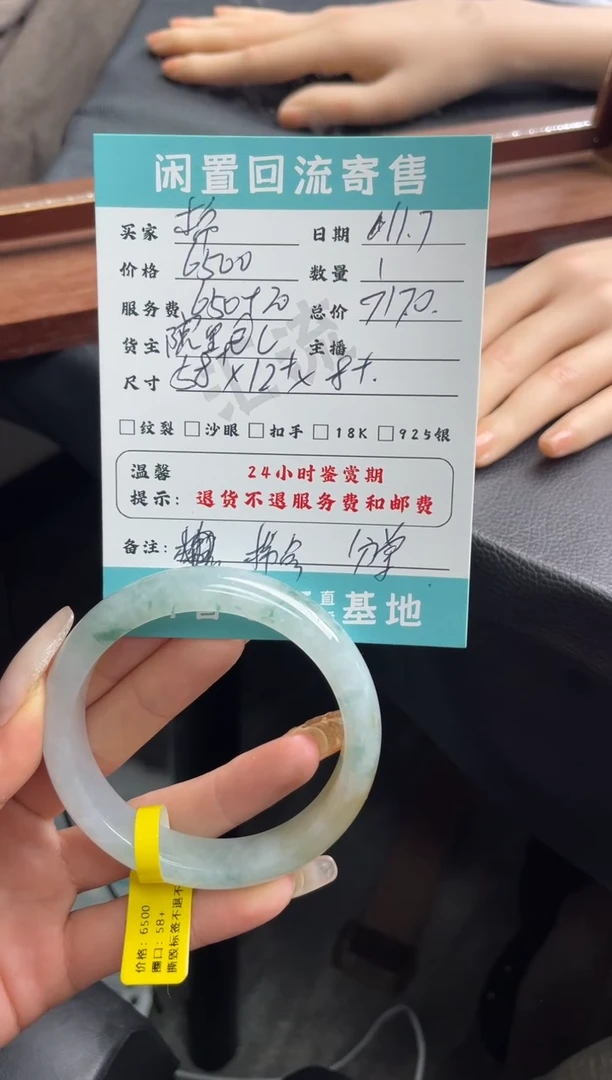 闲置回流寄售
买家 日期 11.7
价格 6500 数量 1
服务费 650+20 总价 7170.
货主 主播
尺寸 58+×12+×8+.
汇流
□纹裂 □沙眼 □扣手 □18K □925银
温馨 24小时鉴赏期
提示: 退货不退服务费和邮费
备注:
直 基地
价格: 6500
圈口: 58+
撕毁标签不退不